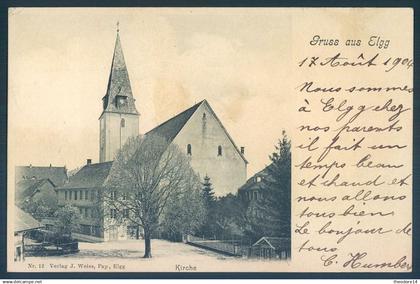 Gruss aus Elgg
17 Août 1904
Nous sommes
à Elgg chez
nos parents
il fait un
temps beau
et chaud et
nous allons
tous bien
Le bonjour de
tous
C. Humber
Nr. 12 Verlag J. Weiss, Pap., Elgg
Kirche
© www.delcampe.net
theodore14